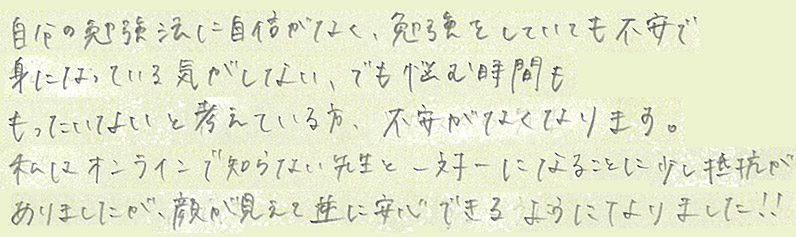 自分の勉強法に自信がなく、勉強をしていても不安で
身になっている気がしない、でも悩む時間も
もったいないと考えている方、不安がなくなります。
私はオンラインで知らない先生と一対一になることに少し抵抗が
ありましたが、顔が見えて逆に安心できるようになりました!!